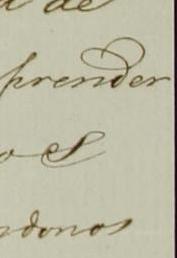 de
prender
o S
donos